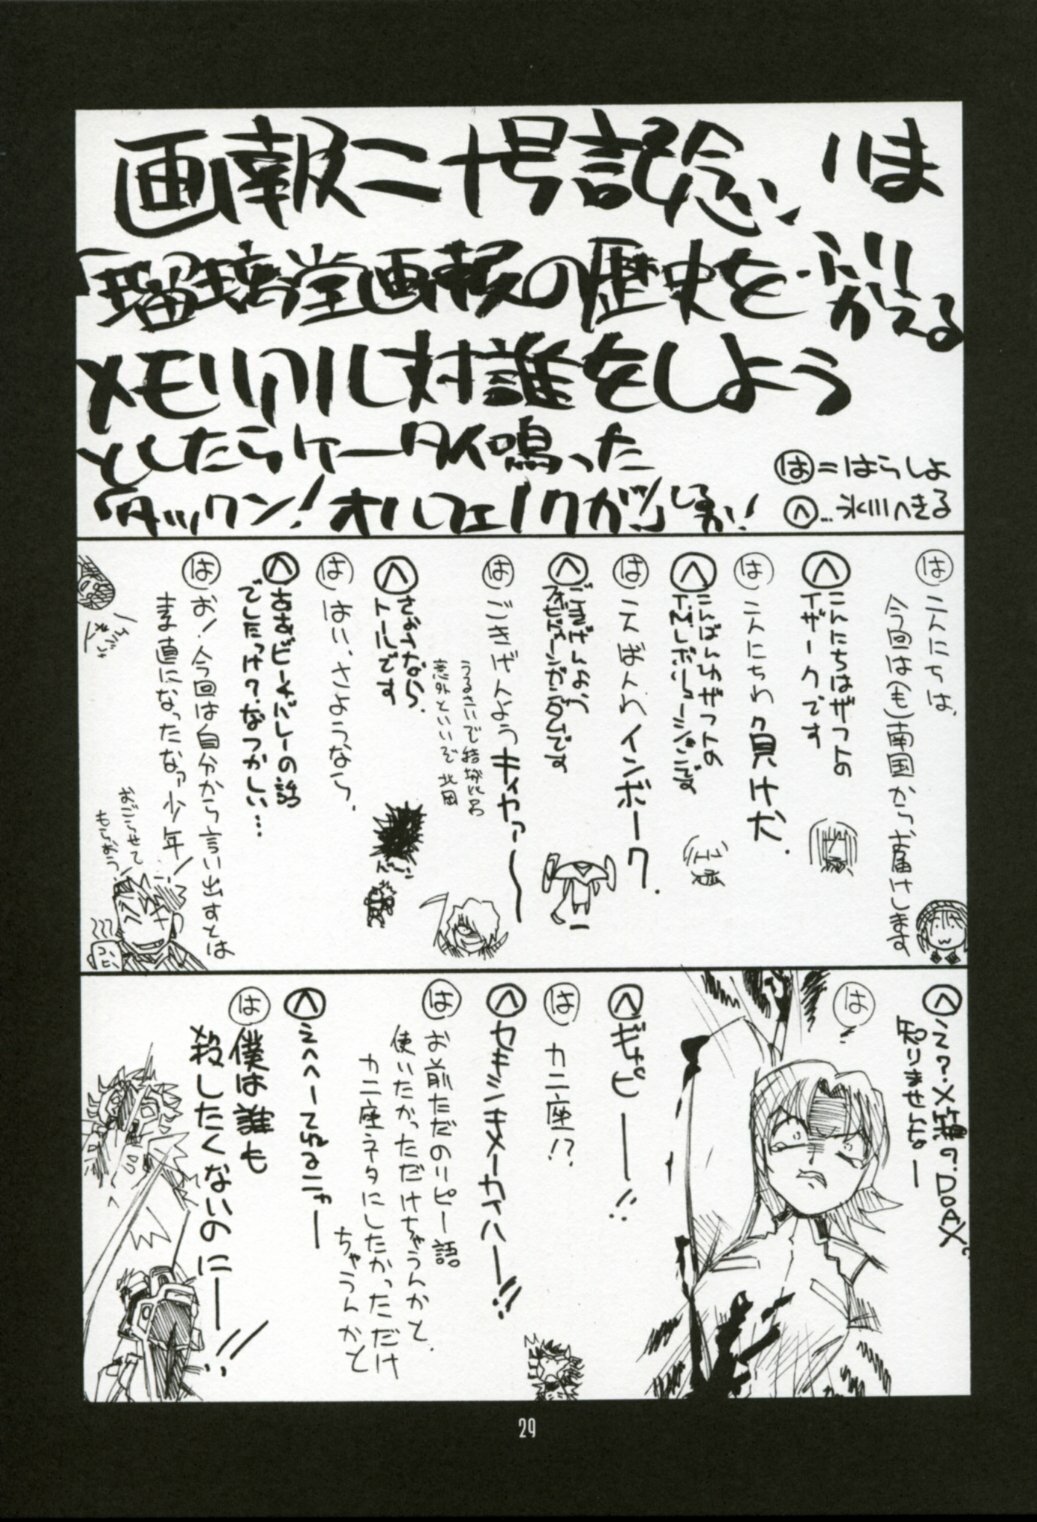 画報二十号記念、
「瑠璃堂画報の歴史を
ふりかえる
メモリアル対談をしよう
としたらケータイ鳴った
タックン！オルフェノクが
は＝はらしょ
へ…氷川へきる
は こんにちは、
今回は(も)南国からお届けします
へ こんにちはザフトの
イザークです
は こんにちわ負け犬．
へ こんばんはザフトの
は こんばんわインボーク．
へ ごきげんよう
は ごきげんようキャァァ～
うるさいで結城比呂
意外といいで 北田
へ さようなら、
トールです
は はい、さようなら、
へ ああビーチバレーの話
でしたっけ？なつかしい…
は お！今回は自分から言い出すとは
素直になったなァ少年！
おごらせて
もらおう
へ え？×箱の．DOAX？
知りませんよー
は ！
へ ギャピーー!!
は カニ座!?
へ セキシンキメーカイハーー!!
は お前ただのリピー語
使いたかっただけちゃうんかと．
カニ座ネタにしたかっただけ
ちゃうんかと
へ えへへーてるニャー
は 僕は誰も
殺したくないのにーー!!
29